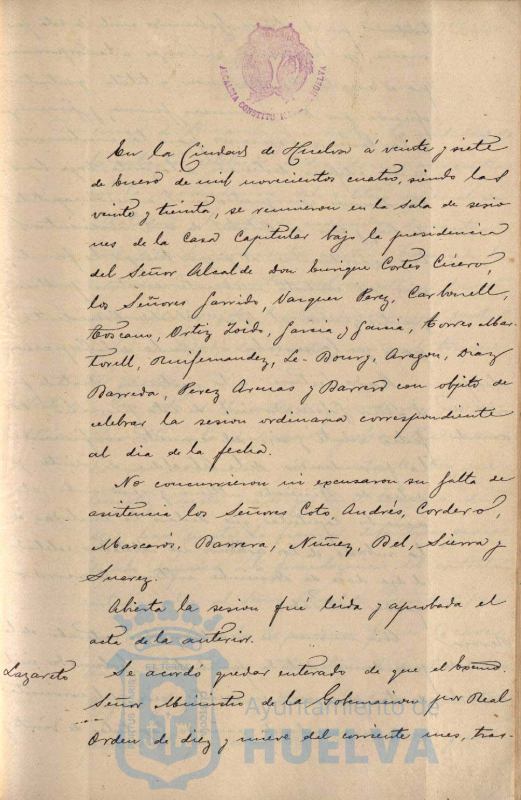 ALCALDIA CONSTITU HUELVA
En la Ciudad de Huelva á veinte y siete
de Enero de mil novecientos cuatro, siendo las
veinte y treinta, se reunieron en la sala de sesio
nes de la casa Capitular bajo la presidencia
del Señor Alcalde Don Enrique Cortes Cicero,
los Señores Garrido, Vazquez Perez, Carbonell,
Toscano, Ortiz Toido, Garcia y Garcia, Torres Mar-
torell, Ruifernandez, Le-Bourg, Aragon, Diaz
Barreda, Perez Arenas y Barrero con objeto de
celebrar la sesion ordinaria correspondiente
al dia de la fecha.
No concurrieron ni escusaron su falta de
asistencia los Señores Coto, Andrés, Cordero,
Mascarós, Barrera, Nuñez, Bel, Sierra y
Suarez.
Abierta la sesion fué leida y aprobada el
acta de la anterior.
Lazareto
Se acordó quedar enterado de que el Excmo.
Señor Ministro de la Gobernacion por Real
Orden de diez y nueve del corriente mes, tras-
Ayuntamiento de
HUELVA